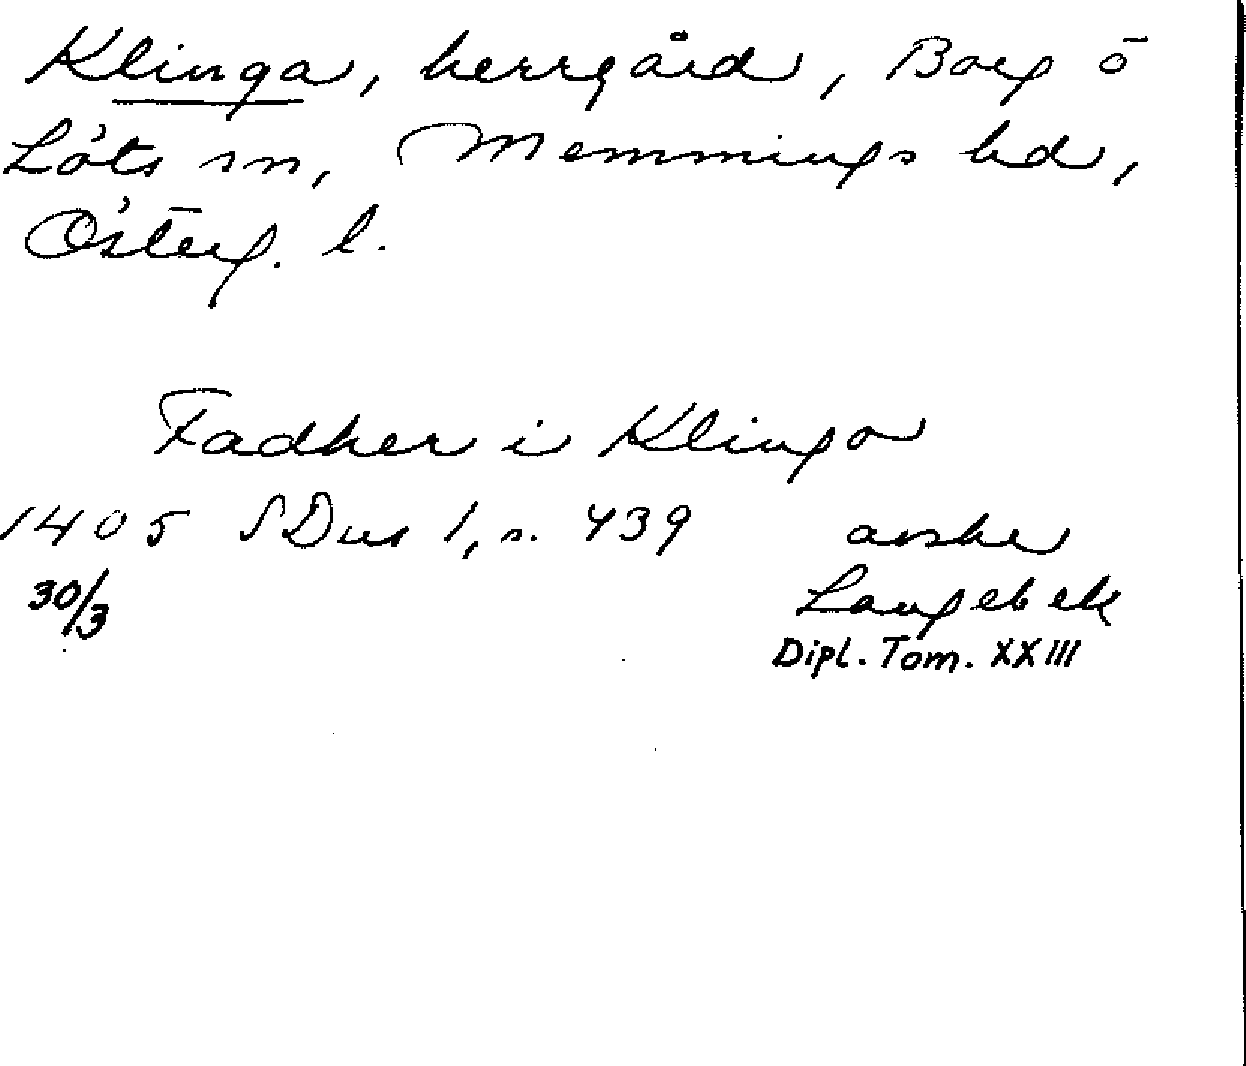 Klinga, herrgård, Borg o
Löts sn, Memmings hd,
Österg. l.
Fadher i Klinga
1405 SDns 1, s. 439 avskr
30/3 Langebek
Dipl. Tom. XXIII